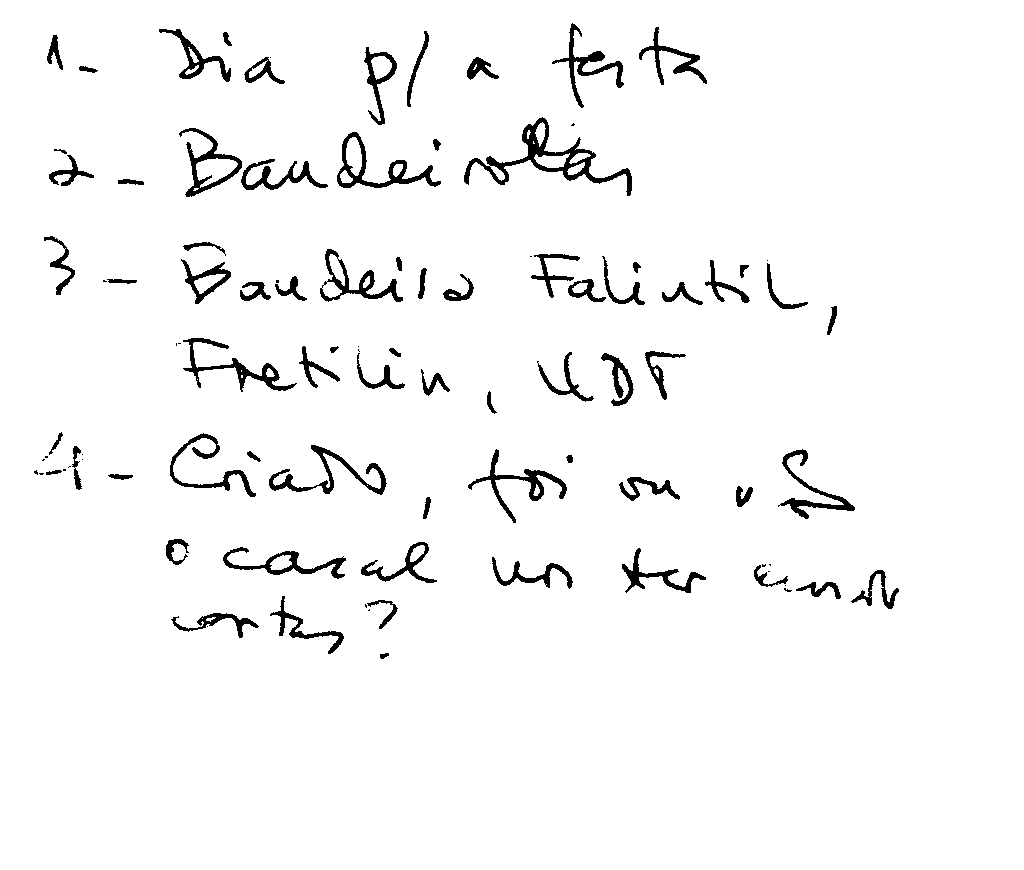 1- Dia p/ a festa
2- Bandeirolas
3- Bandeira Falintil,
Fretilin, UDT
4- Criado, foi ou ñ
o casal nos ter
cartas?